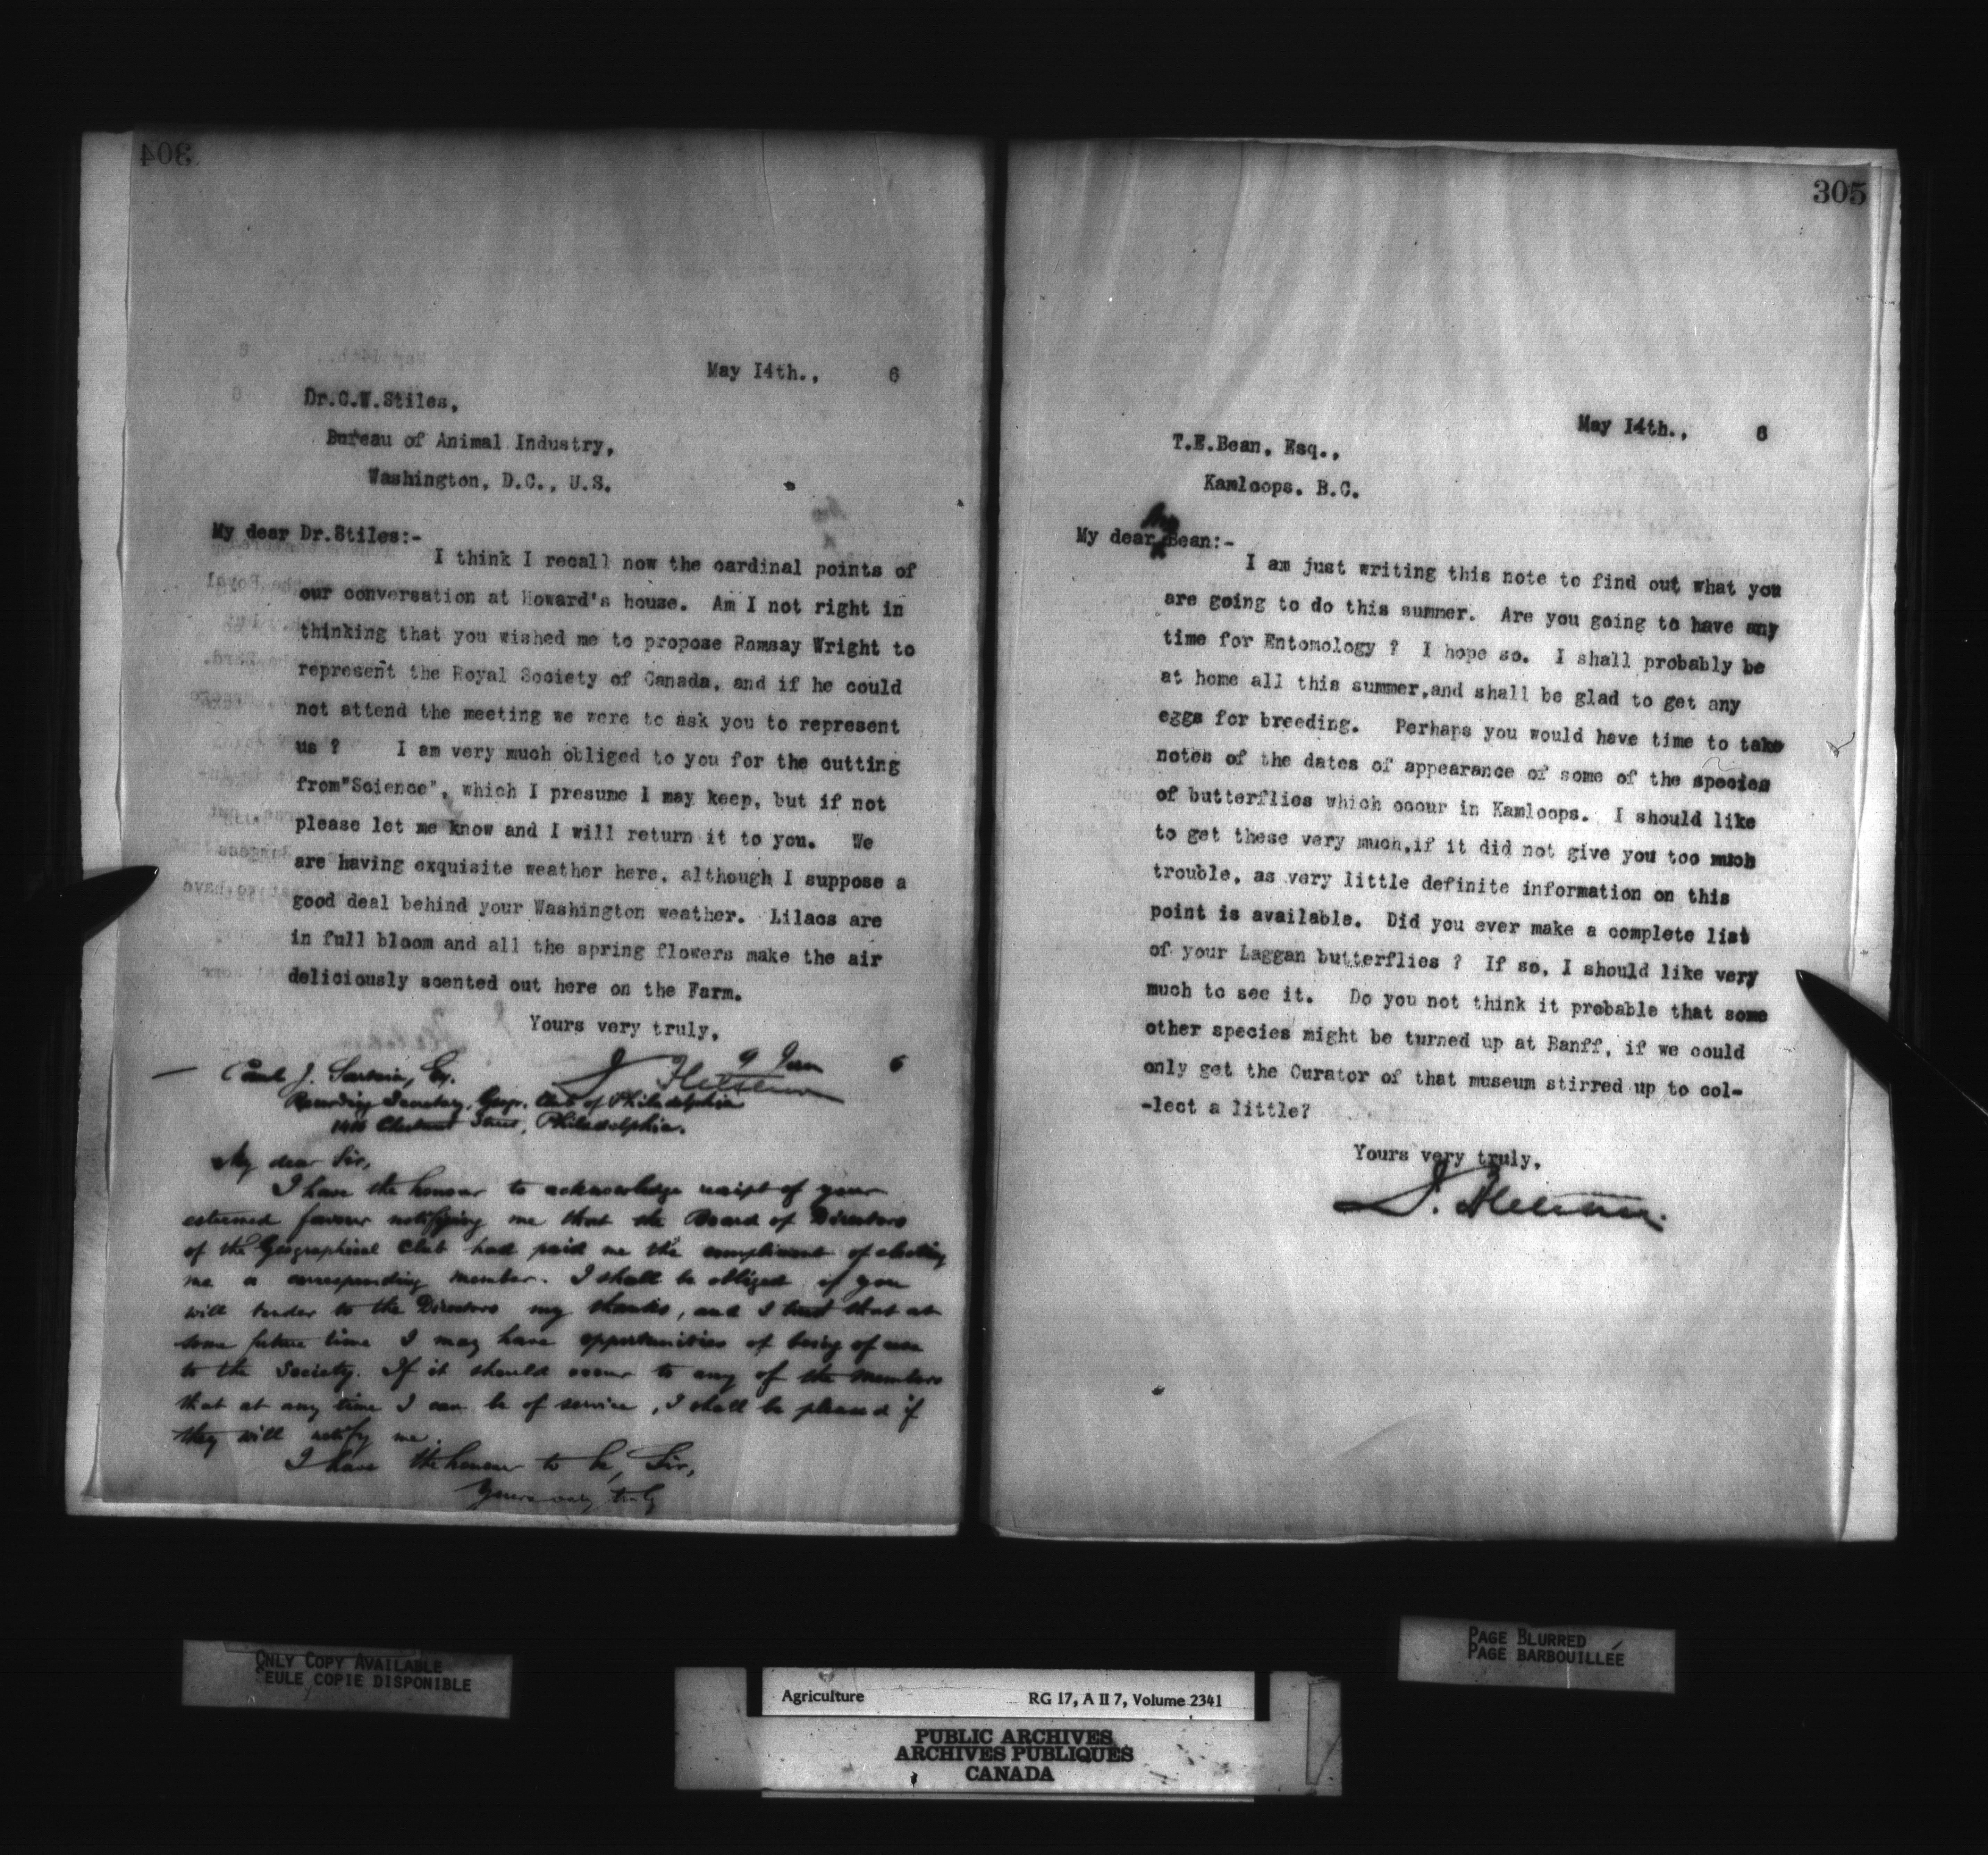 304
May 14th., 6
Dr.C.W.Stiles,
Bureau of Animal Industry,
Washington, D.C., U.S.
My dear Dr.Stiles:-
I think I recall now the cardinal points of
our conversation at Howard's house. Am I not right in
thinking that you wished me to propose Ramsay Wright to
represent the Royal Society of Canada, and if he could
not attend the meeting we were to ask you to represent
us ? I am very much obliged to you for the cutting
from"Science", which I presume I may keep, but if not
please let me know and I will return it to you. We
are having exquisite weather here, although I suppose a
good deal behind your Washington weather. Lilacs are
in full bloom and all the spring flowers make the air
deliciously scented out here on the Farm.
Yours very truly,
J. Fletcher
9 Jan 6
Paul J. Sartain, Esq.
Recording Secretary, Geogr. Club of Philadelphia
Chestnut Street, Philadelphia.
My dear Sir,
I have the honour to acknowledge receipt of your
esteemed favour notifying me that the Board of Directors
of the Geographical Club had paid me the compliment of electing
me a corresponding member. I shall be obliged if you
will tender to the Directors my thanks, and I trust that at
some future time I may have opportunities of being of use
to the Society. If it should occur to any of the members
that at any time I can be of service, I shall be pleased if
they will notify me.
I have the honour to be, Sir,
Yours very truly
305
May 14th., 6
T.E.Bean, Esq.,
Kamloops, B.C.
My dear Mr Bean:-
I am just writing this note to find out what you
are going to do this summer. Are you going to have any
time for Entomology ? I hope so. I shall probably be
at home all this summer,and shall be glad to get any
eggs for breeding. Perhaps you would have time to take
notes of the dates of appearance of some of the species
of butterflies which occur in Kamloops. I should like
to get these very much,if it did not give you too much
trouble, as very little definite information on this
point is available. Did you ever make a complete list
of your Laggan butterflies ? If so, I should like very
much to see it. Do you not think it probable that some
other species might be turned up at Banff, if we could
only get the Curator of that museum stirred up to col-
-lect a little?
Yours very truly,
J. Fletcher.
ONLY COPY AVAILABLE
EULE COPIE DISPONIBLE
PAGE BLURRED
PAGE BARBOUILLÉE
Agriculture RG 17, A II 7, Volume 2341
PUBLIC ARCHIVES
ARCHIVES PUBLIQUES
CANADA